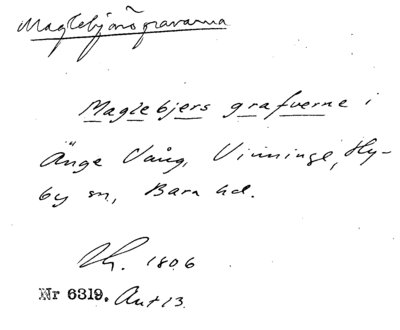 Maglebjersgravarna
Maglebjers grafverne i
Änge Vång, Vinninge, Hy-
by sn, Bara hd.
Th. 1806
Nr 6319. Ant 13.